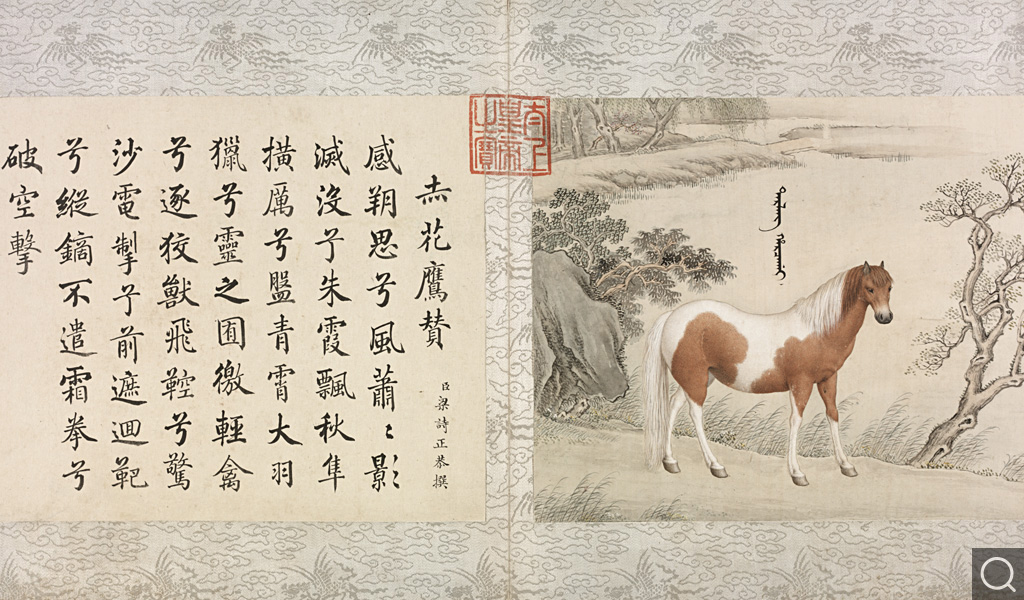 太上
皇帝
之寶
赤花鷹賛
臣梁詩正恭撰
感朔思兮風蕭〻影
滅沒兮朱霞飄秋隼
橫厲兮盤青霄大羽
獵兮靈之囿徼輕禽
兮逐狡獸飛鞚兮驚
沙電掣兮前遮迴靶
兮縱鏑不遣霜拳兮
破空擊